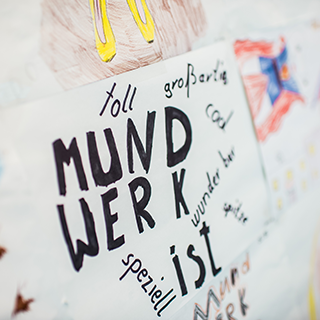 toll
großartig
MUND
WERK
wunderbar
spitze
ist
speziell
Mund
WERK